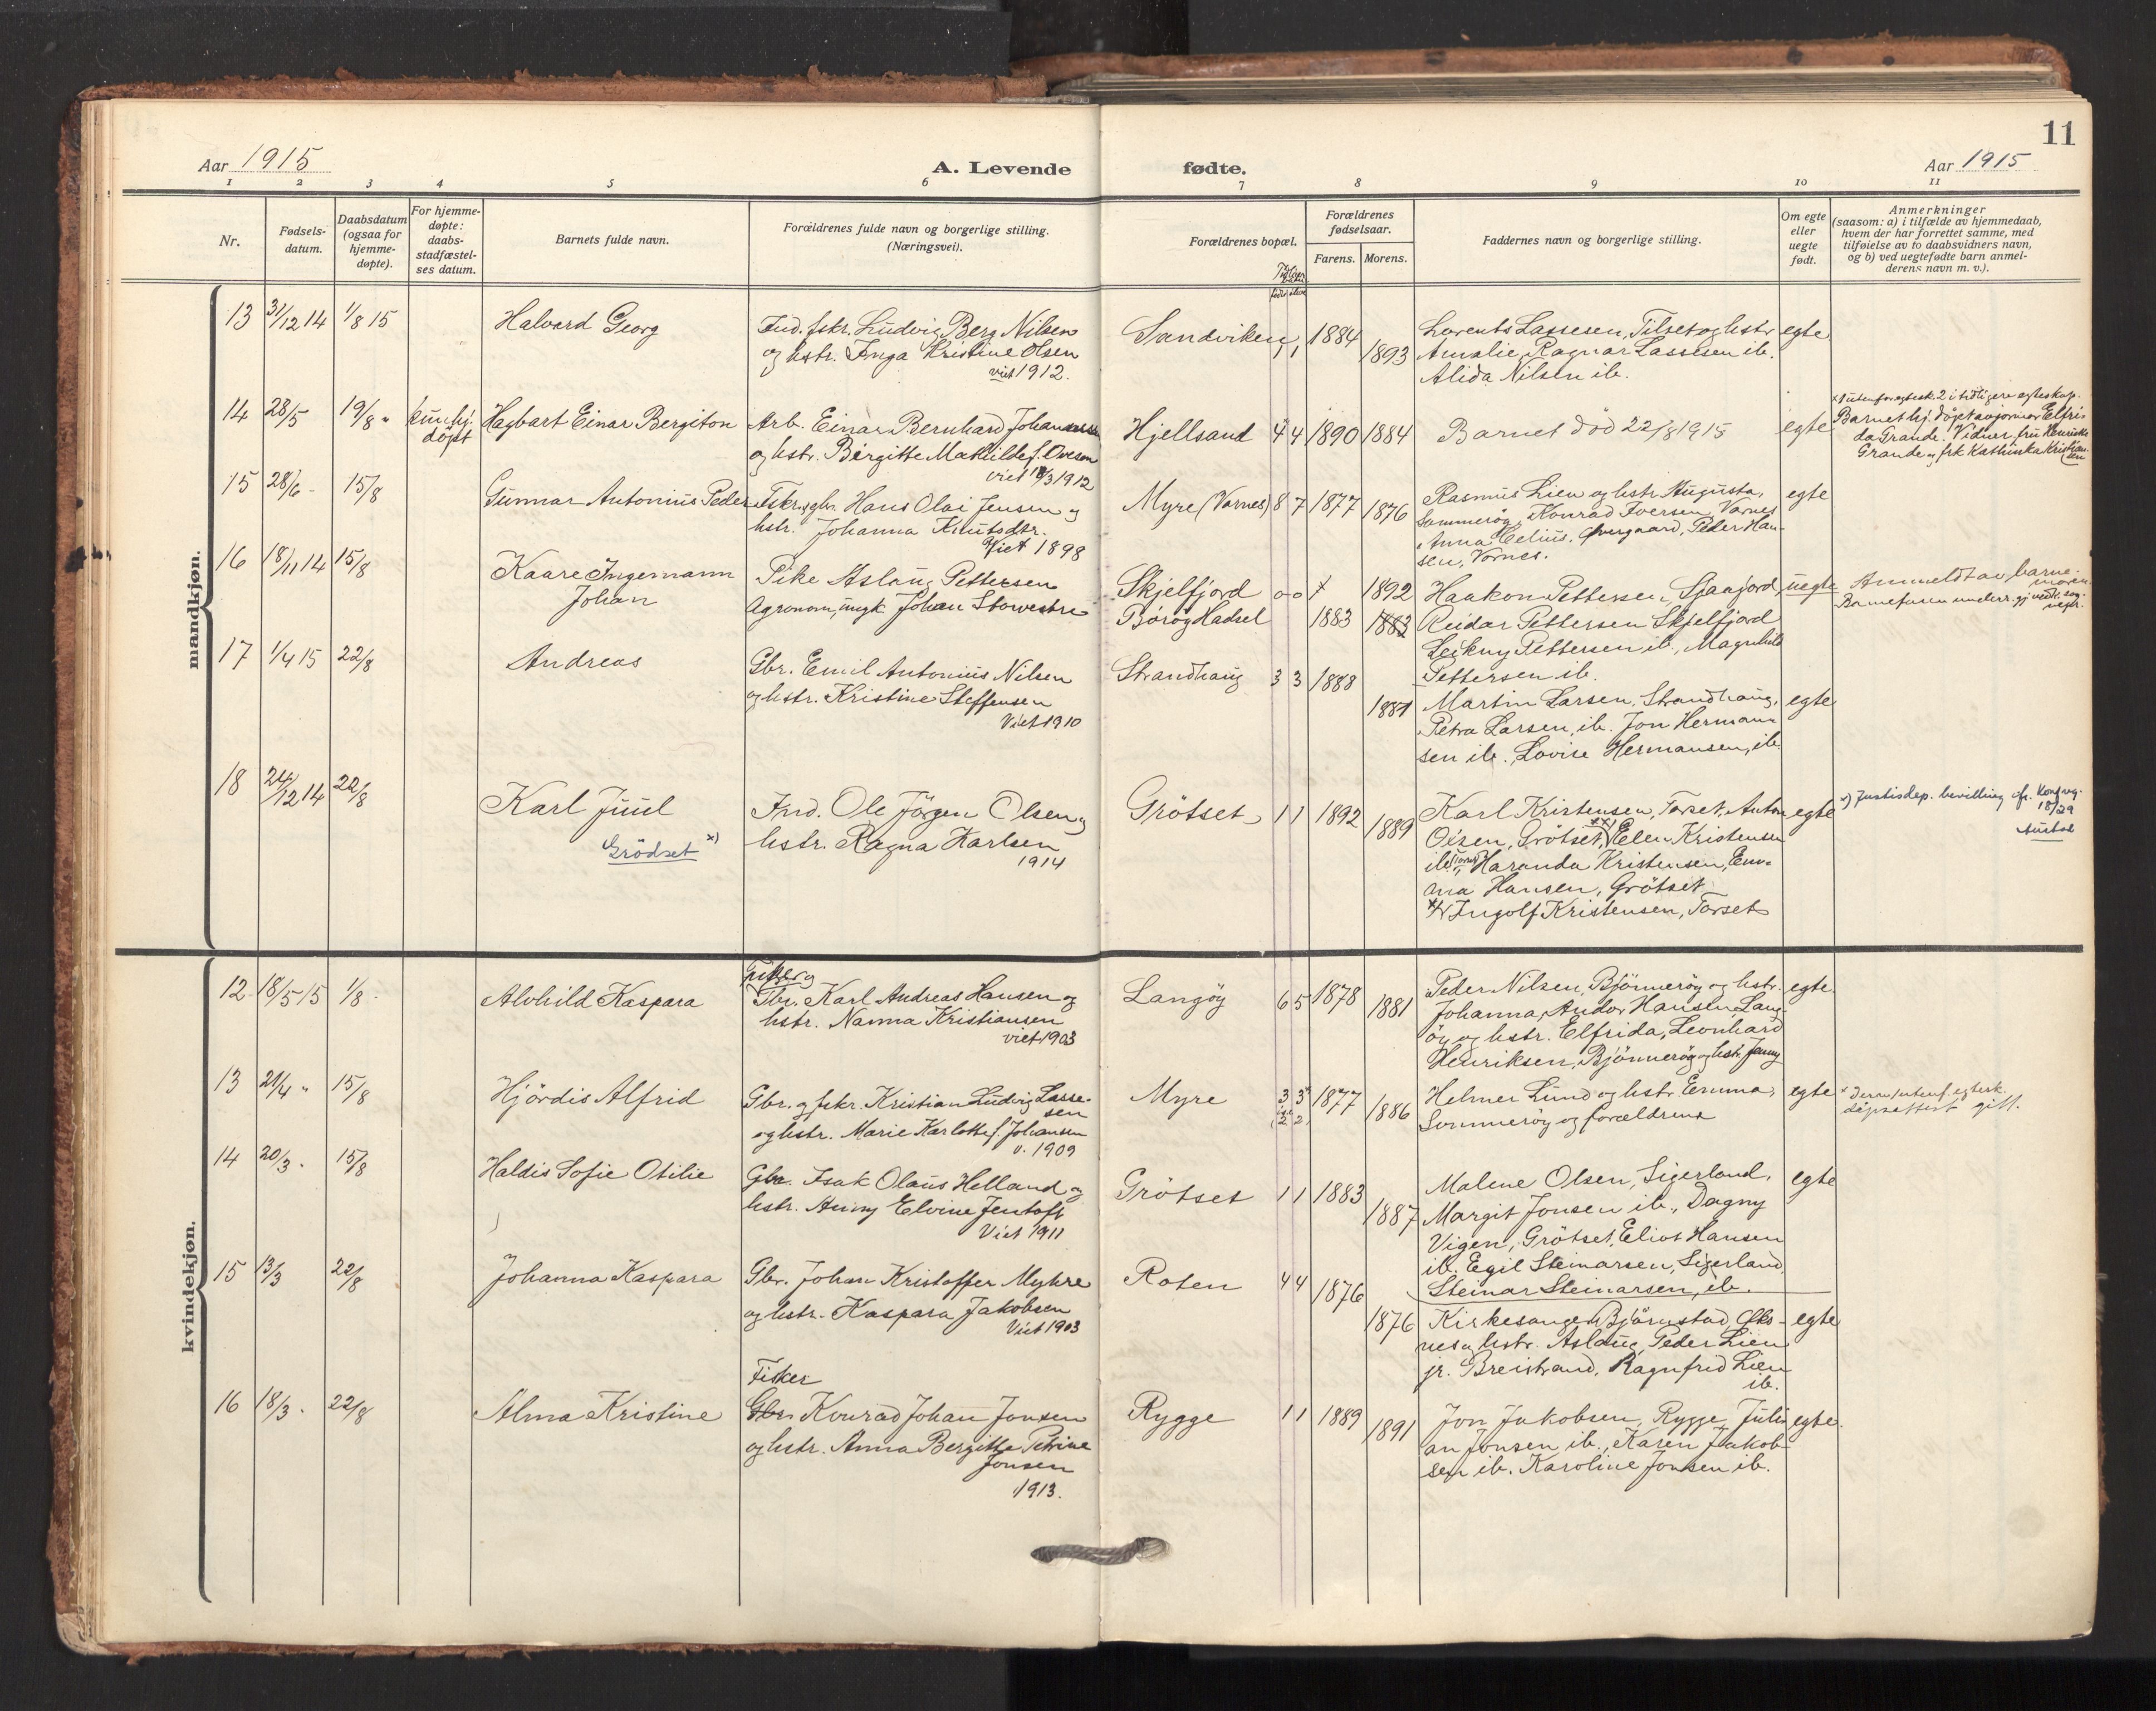 11
Aar 1915
A. Levende
fødte.
Aar 1915
1 2 3 4 5 6 7 8 9 10 11
Nr.
Fødsels-
datum.
Daabsdatum
(ogsaa for
hjemme-
døpte).
For hjemme-
døpte:
daabs-
stadfæstel-
ses datum.
Barnets fulde navn.
Forældrenes fulde navn og borgerlige stilling.
(Næringsvei).
Forældrenes bopæl.
Forældrenes
fødselsaar.
Farens. Morens.
Faddernes navn og borgerlige stilling.
Om egte
eller
uegte
født.
Anmerkninger
(saasom: a) i tilfælde av hjemmedaab,
hvem der har forrettet samme, med
tilføielse av to daabsvidners navn,
og b) ved uegtefødte barn anmel-
derens navn m. v.).
mandkjøn.
13 31/12 14 1/8 15
Halvard Georg
Ind. fskr. Ludvig Berg Nilsen
og hstr. Inga Kristine Olsen
viet 1912.
Sandviken 1 1 1884
1893
Lorents Lassesen, Tilset og hstr
Amalie, Ragnar Lassesen ib.
Alida Nilsen ib.
egte
14 28/5 19/8 "
kun hj.
døpt
Hagbart Einar Bergiton
Arb. Einar Bernhard Johansen
og hstr. Birgitte Mathilde f. Oveson
viet 1912
Hjellsand 4 4 1890 1884
Barnet død 22/8 1915
egte
Barnet hj. døpt av jormor Elfri-
da Grande. Vidner, fru Henrikke
Grande og frk Kathinka Kristian-
sen
15 28/6 - 15/8
Gunnar Antonius Peder
Fskr. gbr. Hans Olai Jensen og
hstr. Johanna Knutsdtr.
Viet 1898
Myre (Vornes) 8 7 1877 1876
Rasmus Lien og hstr. Augusta,
Sommerøy, Konrad Iversen, Vornes
Anna Celius, Øvergaard, Peder Han-
sen, Vornes.
egte
16 18/11 14 15/8
Kaare Ingemann
Johan
Pike Aslaug Pettersen
Agronom, ungk Johan Storvestre
Skjelfjord 0 0
Børøy Hadsel
1892
1883 1883
Haakon Pettersen, Sjaafjord
Reidar Pettersen Skjelfjord
Leikny Pettersen ib., Magnhild
Pettersen ib.
uegte
Anmeldt av barne-
moren.
17 1/4 15 22/8
Andreas
Gbr. Emil Antonius Nilsen
og hstr. Kristine Steffensen
Viet 1910
Strandhaug 3 3 1888
1881
Martin Larsen, Strandhaug,
Petra Larsen, ib. Jon Herman-
sen ib. Lovise Hermansen, ib.
egte
18 24/12 14 22/8
Karl Juul
Grödset x)
Ind. Ole Jörgen Olsen og
hstr. Ragna Karlsen
1914
Grötset 1 1 1892
1889
Karl Kristensen, Torset, Anton
Olsen, Grötset, Elen Kristensen
ib. Haranda Kristensen, Em-
ma Hansen, Grötset
Ingolf Kristensen, Torset
egte
x) Justisdep. bevilling
18/29
kvindekjøn.
12 18/5 15 1/8 -
Alvhild Kaspara
Fisker og
Gbr. Karl Andreas Hansen og
hstr. Nanna Kristiansen
viet 1903
Langöy 6 5 1878
1881
Peder Nilsen, Björnerøy og hstr.
Johanna, Andor Hansen Lang-
öy og hstr. Elfrida, Leonhard
Henriksen, Björnerøy og hstr. Jenny
egte
13 21/4 " 15/8
Hjördis Alfrid
Gbr. og fskr. Kristian Ludvig Lasse-
sen
og hstr. Marie Karlotte f. Johansen
v. 1909
Myre 3 3 1877
2 2 1886
Helmer Lund og hstr. Emma,
Sommeröy og forældrene
egte
14 20/3 . 15/8
Haldis Sofie Otilie
Gbr. Isak Olaus Helland og
hstr. Anny Elvine Jentoft
Viet 1911
Grötset 1 1 1883
1887
Malene Olsen, Sigerland,
Margit Jonsen ib., Dagny
Vigen, Grötset, Eliot Hansen
ib. Egil Steinarsen, Sigerland
Steinar Steinarsen, ib.
egte
15 13/3 22/8
Johanna Kaspara
Gbr. Johan Kristoffer Myhre
og hstr. Kaspara Jakobsen
Viet 1903
Roten 4 4 1876
1876
Kirkesanger Björnstad, Øks-
nes og hstr. Aslaug, Peder Lien
jr. Breistrand, Ragnfrid Lien
ib.
egte
16 18/3 . 22/8
Alma Kristine
Fisker
Gbr. Konrad Johan Jonsen
og hstr. Anna Bergitte Petrine
Jonsen
1913.
Rygge 1 1 1889
1891
Jon Jakobsen, Rygge, Juli-
an Jonsen ib., Karen Jakob-
sen ib. Karoline Jonsen ib.
egte.